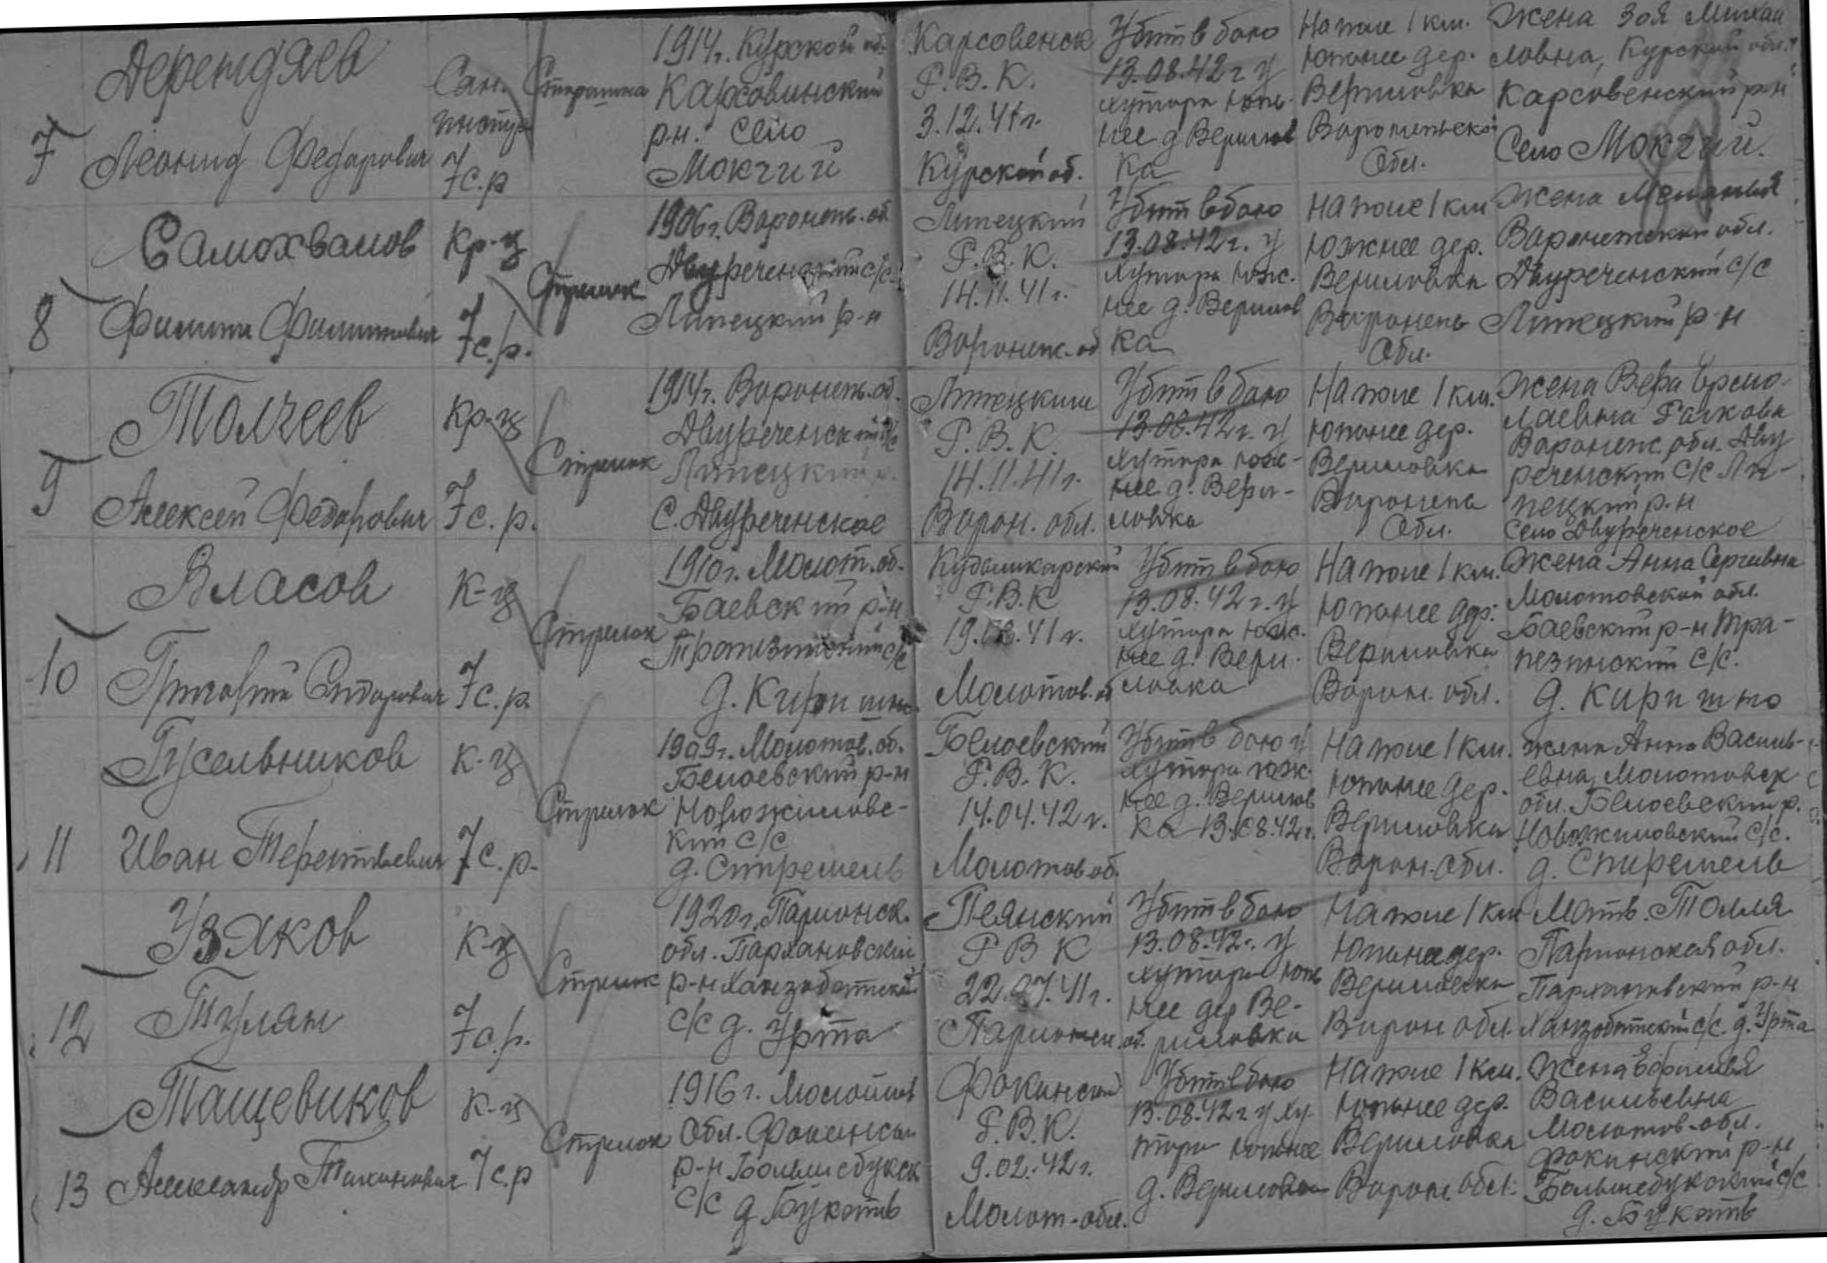 7
Дерендяев
Леонид Федорович
Сан.
инстр.
7 с.р
Старшина
1914г. Курской об.
Карсовинский
р.н. село
Мокчии
Карсовенск
Р.В.К.
3.12.41г.
Курской об.
Убит в бою
13.08.42г у
хутора Юж-
нее д Верилов
ка
На поле 1 км.
Южнее дер.
Вериловка
Обл.
Жена Зоя Михай
ловна, Курской обл.
Карсовенский р-н
Село Мокчии.
8
Самохвалов
Филипп Филиппович
Кр-ц
7 с.р.
Стрелок
1906г. Воронеж. об
Двуреченский с/с.
Липецкий р-н
Липецкий
Р.В.К.
14.11.41г.
Воронеж. об
Убит в бою
13.08.42г. у
хутора Юж.
нее д. Верилов
ка
На поле 1 км
Южнее дер.
Вериловка
Воронеж
Обл.
Жена Меланья
Воронежской обл.
Двуреченский с/с
Липецкий р-н
9
Толчеев
Алексей Федорович
Кр-ц
7 с.р.
Стрелок
1914г. Воронеж. об.
Двуреченский с/с
Липецкий р.
С. Двуреченское
Липецким
Р.В.К.
14.11.41г.
Ворон. обл.
Убит в бою
13.08.42г. у
хутора Юж-
нее д. Вери-
ловка
На поле 1 км.
Южнее дер.
Вериловка
Воронеж
Обл.
Жена Вера Ермо-
лаевна
Воронеж. обл. Дву
реченский с/с Ли-
пецкий р.н
Село Двуреченское
10
Власов
Григорий Сидорович
К-ц
7 с.р.
Стрелок
1910г. Молот. об.
Баевский р-н
с/с
Кудымкарский
Р.В.К
41г.
Молотов. об
Убит в бою
13.08.42г. у
хутора Юж.
нее д. Вери-
ловка
На поле 1 км.
Южнее дер.
Вериловка
Ворон. обл.
Жена Анна Сергеевна
Молотовской обл.
Баевский р-н Тра-
пезинский с/с.
д. Киришно
11
Гусельников
Иван Терентьевич
К-ц
7 с.р.
Стрелок
1909г. Молотов. об.
Белоевский р-н
Новожиловс-
кий с/с
д. Стремель
Белоевский
Р.В.К.
14.04.42г.
Молотов об.
Убит в бою у
хутора Юж.
нее д. Верилов
ка 13.08.42г.
На поле 1 км.
Южнее дер.
Вериловка
Ворон. обл.
Жена Анна Василь-
евна, Молотовск
обл. Белоевский р.
Новожиловский с/с.
д. Стремель
12
Узяков
Тулян
К-ц
7 с.р.
Стрелок
обл. Пархановский
р-н Ханзобетской
с/с д. Урта
Р В К
22.07.41г.
Убит в бою
13.08.42г. у
хутора Юж
нее дер Ве-
риловка
На поле 1 км
Южнее дер.
Вериловка
Ворон обл.
Мать. Толля
обл.
Пархановский р-н
Ханзобетский с/с. д. Урта
13
Тащевиков
Александр Тихонович
К-ц
7 с.р
Стрелок
1916г. Молотов
Обл. Фокинск
р-н Большебукск
с/с д Букоть
Фокинский
Р.В.К.
9.02.42г.
Молот-обл.
Убит в бою
13.08.42г у ху
тора Южнее
д. Вериловка
На поле 1 км.
Южнее дер.
Вериловка
Ворон. обл.
Жена
Васильевна
Молотов-обл.
Фокинский р-н
Большебукский с/с
д. Букоть